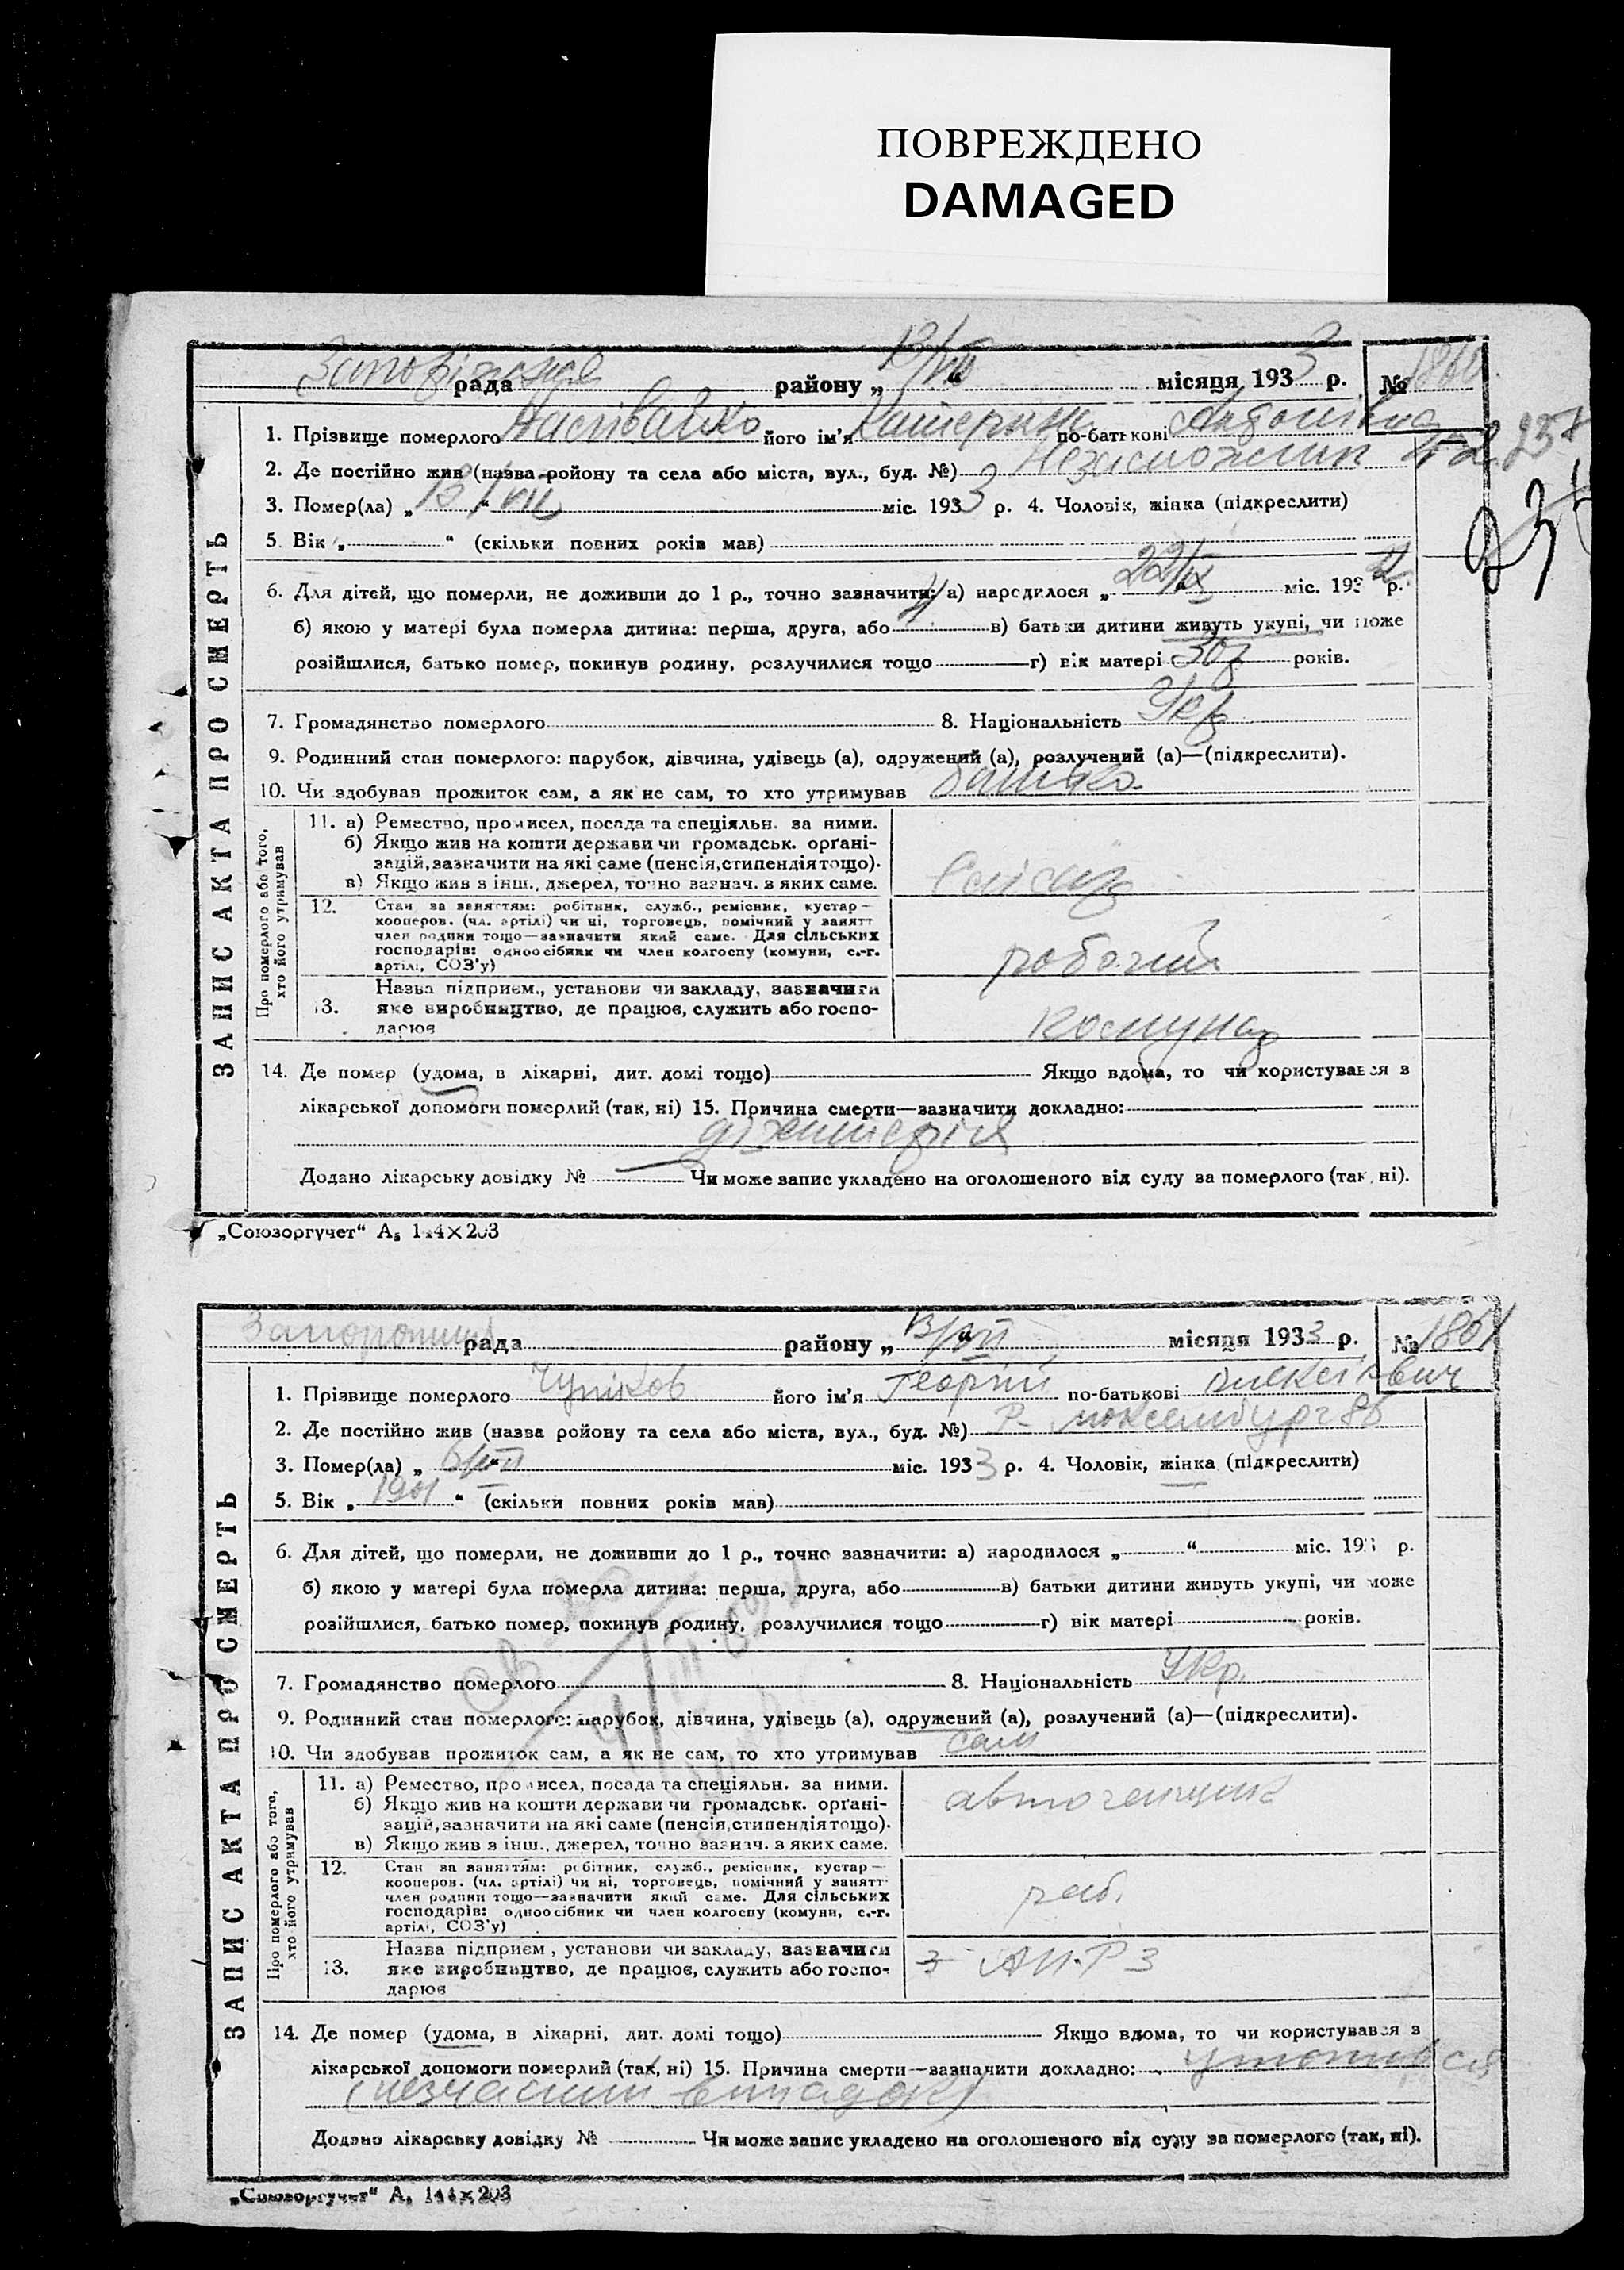 ПОВРЕЖДЕНО
DAMAGED
рада району „ 13/VII “ місяця 1933 р. №
ЗАПИС АКТА ПРО СМЕРТЬ
1. Прізвище померлого його ім'я Катерина по-батькові
2. Де постійно жив (назва ройону та села або міста, вул., буд. №) Незаможник
3. Помер(ла) „ 13/VII “ міс. 1933 р. 4. Чоловік, жінка (підкреслити)
5. Вік „ “ (скільки повних років мав)
6. Для дітей, що померли, не доживши до 1 р., точно зазначити: а) народилося „ 22/IX міс. 1932 р.
б) якою у матері була померла дитина: перша, друга, або 4 в) батьки дитини живуть укупі, чи може
розійшлися, батько помер, покинув родину, розлучилися тощо г) вік матері 30 р років.
7. Громадянство померлого 8. Національність Укр
9. Родинний стан померлого: парубок, дівчина, удівець (а), одружений (а), розлучений (а)—(підкреслити).
10. Чи здобував прожиток сам, а як не сам, то хто утримував батько
Про померлого або того, хто його утримував
11. а) Ремество, промисел, посада та спеціяльн. за ними.
б) Якщо жив на кошти держави чи громадськ. орґані-
зацій, зазначити на які саме (пенсія, стипендія тощо).
в) Якщо жив з інш., джерел, точно зазнач. з яких саме.
Слісар
12. Стан за заняттям: робітник, служб., ремісник, кустар—
кооперов. (чл. артілі) чи ні, торговець, помічний у занятт
член родини тощо—зазначити який саме. Для сільських
господарів: одноосібник чи член колгоспу (комуни, с.-г.
артілі, СОЗ'у)
робочий
Назва підприєм., установи чи закладу, зазначити
13. яке виробництво, де працює, служить або госпо-
дарює
Комунар
14. Де помер (удома, в лікарні, дит. домі тощо) Якщо вдома, то чи користувався з
лікарської допомоги померлий (так, ні) 15. Причина смерти—зазначити докладно:
дізентерія
Додано лікарську довідку № Чи може запис укладено на оголошеного від суду за померлого (так, ні).
„Союзоргучет“ А5 144×203
рада району „ 13/VII “ місяця 1933 р. № 1861
ЗАПИС АКТА ПРО СМЕРТЬ
1. Прізвище померлого його ім'я Георгій по-батькові Олексієвич
2. Де постійно жив (назва ройону та села або міста, вул., буд. №)
3. Помер(ла) „ 6/VII “ міс. 1933 р. 4. Чоловік, жінка (підкреслити)
5. Вік „ 1901 “ (скільки повних років мав)
6. Для дітей, що померли, не доживши до 1 р., точно зазначити: а) народилося „ “ міс. 193 р.
б) якою у матері була померла дитина: перша, друга, або в) батьки дитини живуть укупі, чи може
розійшлися, батько помер, покинув родину, розлучилися тощо г) вік матері років.
7. Громадянство померлого 8. Національність Укр.
9. Родинний стан померлого: парубок, дівчина, удівець (а), одружений (а), розлучений (а)—(підкреслити).
10. Чи здобував прожиток сам, а як не сам, то хто утримував сам
Про померлого або того, хто його утримував
11. а) Ремество, промисел, посада та спеціяльн. за ними.
б) Якщо жив на кошти держави чи громадськ. орґані-
зацій, зазначити на які саме (пенсія, стипендія тощо).
в) Якщо жив з інш., джерел, точно зазнач. з яких саме.
12. Стан за заняттям: робітник, служб., ремісник, кустар—
кооперов. (чл. артілі) чи ні, торговець, помічний у занятт
член родини тощо—зазначити який саме. Для сільських
господарів: одноосібник чи член колгоспу (комуни, с.-г.
артілі, СОЗ'у)
роб.
Назва підприєм., установи чи закладу, зазначити
13. яке виробництво, де працює, служить або госпо-
дарює
14. Де помер (удома, в лікарні, дит. домі тощо) Якщо вдома, то чи користувався з
лікарської допомоги померлий (так, ні) 15. Причина смерти—зазначити докладно: утопився
(незчасний випадок)
Додано лікарську довідку № Чи може запис укладено на оголошеного від суду за померлого (так, ні).
„Союзоргучет“ А5 144×203